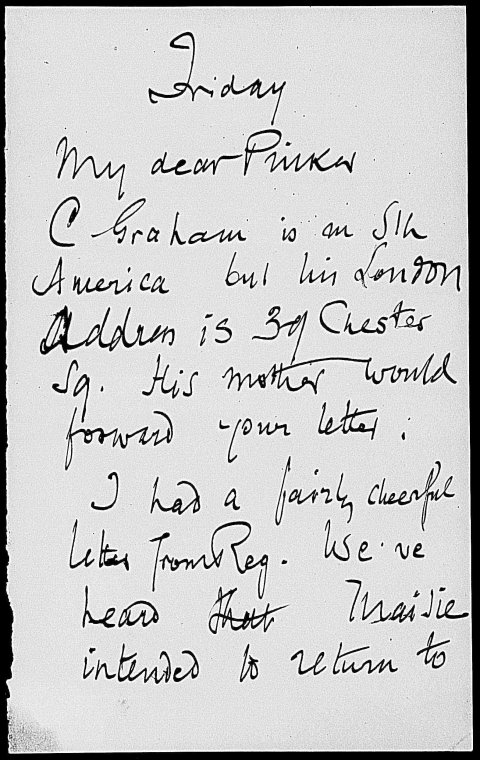 Friday
My dear Pinker
C Graham is in Sth
America but his London
Address is 39 Chester
Sq. His mother would
forward your letter.
I had a fairly cheerful
letter from Reg. We've
heard that Maisie
intended to return to